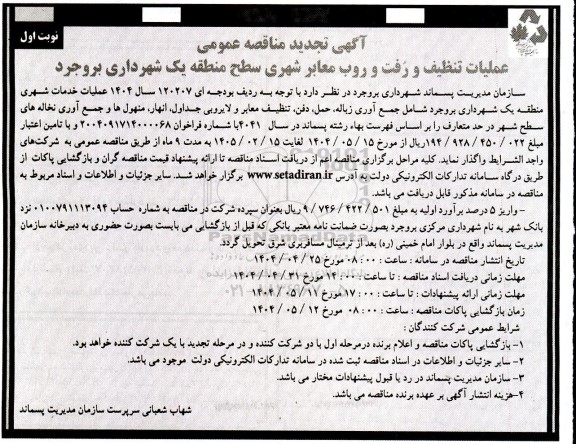 نوبت اول
آگهی تجدید مناقصه عمومی
عملیات تنظیف و رُفت و روب معابر شهری سطح منطقه یک شهرداری بروجرد
سازمان مدیریت پسماند شهرداری بروجرد در نظر دارد با توجه به ردیف بودجه ای ۱۲۰۲۰۷ سال ۱۴۰۴ عملیات خدمات شهری
منطقه یک شهرداری بروجرد شامل جمع آوری زباله، حمل، دفن، تنظیف معابر و لایروبی جداول، انهار، منهول ها و جمع آوری نخاله های
سطح شهر در حد متعارف را بر اساس فهرست بهاء رشته پسماند در سال ۱۴۰۴با شماره فراخوان ۲۰۰۴۰۹۱۷۱۴۰۰۰۰۶۸ و با تامین اعتبار
مبلغ ۰۲۲/ ۴۵۰/ ۹۲۸/ ۱۹۴ریال از مورخ ۱۵/ ۰۵/ ۱۴۰۴ لغایت ۱۵/ ۰۲/ ۱۴۰۵ به مدت ۹ ماه از طریق مناقصه عمومی به شرکت‌های
واجد الشرایط واگذار نماید. کلیه مراحل برگزاری مناقصه اعم از دریافت اسناد مناقصه تا ارائه پیشنهاد قیمت مناقصه گران و بازگشایی پاکات از
طریق درگاه سامانه تدارکات الکترونیکی دولت به آدرس www.setadiran.ir برگزار خواهد شد. سایر جزئیات و اطلاعات و اسناد مربوط به
مناقصه در سامانه مذکور قابل دریافت می باشد.
- واریز ۵ درصد برآورد اولیه به مبلغ ۵۰۱/ ۴۲۲/ ۷۴۶/ ۹ ریال بعنوان سپرده شرکت در مناقصه به شماره حساب ۰۱۰۰۷۹۱۱۱۳۰۹۴ نزد
بانک شهر به نام شهرداری مرکزی بروجرد بصورت ضمانت نامه معتبر بانکی که قبل از بازگشایی می بایست بصورت حضوری به دبیرخانه سازمان
مدیریت پسماند واقع در بلوار امام خمینی (ره) بعد از ترمینال مسافربری شرق تحویل گردد.
تاریخ انتشار مناقصه در سامانه : ساعت : ۰۸:۰۰ مورخ ۲۵/ ۰۴/ ۱۴۰۴
مهلت زمانی دریافت اسناد مناقصه : تا ساعت : ۱۴:۰۰ مورخ ۳۱/ ۰۴/ ۱۴۰۴
مهلت زمانی ارائه پیشنهادات : تا ساعت : ۱۷:۰۰ مورخ ۱۱/ ۰۵/ ۱۴۰۴
زمان بازگشایی پاکات مناقصه : ساعت : ۰۸:۰۰ مورخ ۱۲/ ۰۵/ ۱۴۰۴
شرایط عمومی شرکت کنندگان :
۱- بازگشایی پاکات مناقصه و اعلام برنده درمرحله اول با دو شرکت کننده و در مرحله تجدید با یک شرکت کننده خواهد بود.
۲- سایر جزئیات و اطلاعات در اسناد مناقصه ثبت شده در سامانه تدارکات الکترونیکی دولت موجود می باشد.
۳- سازمان مدیریت پسماند در رد یا قبول پیشنهادات مختار می باشد.
۴-هزینه انتشار آگهی بر عهده برنده مناقصه می باشد.
شهاب شعبانی سرپرست سازمان مدیریت پسماند